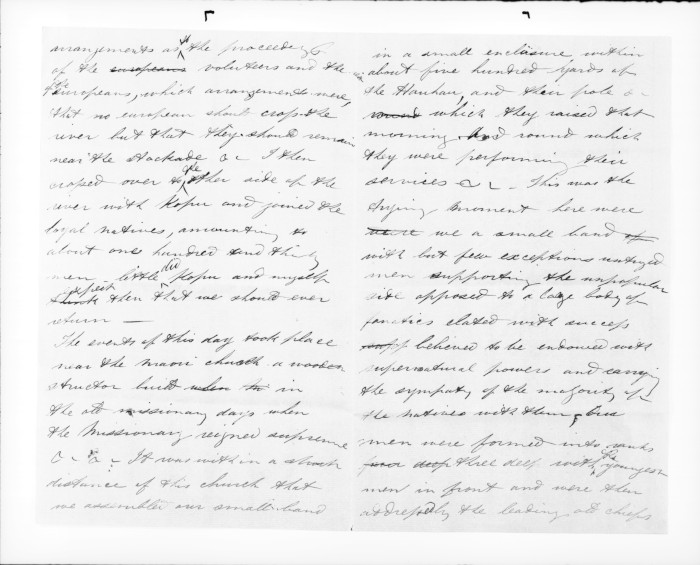 arrangements as to the proceeding
of the europeans volunteers and the
the europeans, which arrangements were,
that no european should cross the
river but that they should remain
near the stockade &c I then
crossed over to the other side of the
river with Hopu and joined the
loyal natives, amounting to
about one hundred and thirty
men little did Hopu and myself
think expect then that we should ever
return —
The events of this day took place
near the maori church a wooden
structor built when in in
the old missionary days when
the Missionary reigned supreme
&c &c It was within a short
distance of this church that
we assembled our small band
in a small enclosure within
about five hundred yards of
the Hauhau, and their pole
round which they raised that
morning and round which
they were performing their
services &c — This was the
trying moment here were
were we a small band of
with but few exceptions untryed
men supporting the unpopular
side opposed to a large body of
fanatics elated with success
believed to be endowed with
supernatural powers and carrying
the sympaty of the majority of
the natives with them, our
men were formed into ranks
four deep three deep with the youngest
men in front and were then
addressed by the leading old chiefs